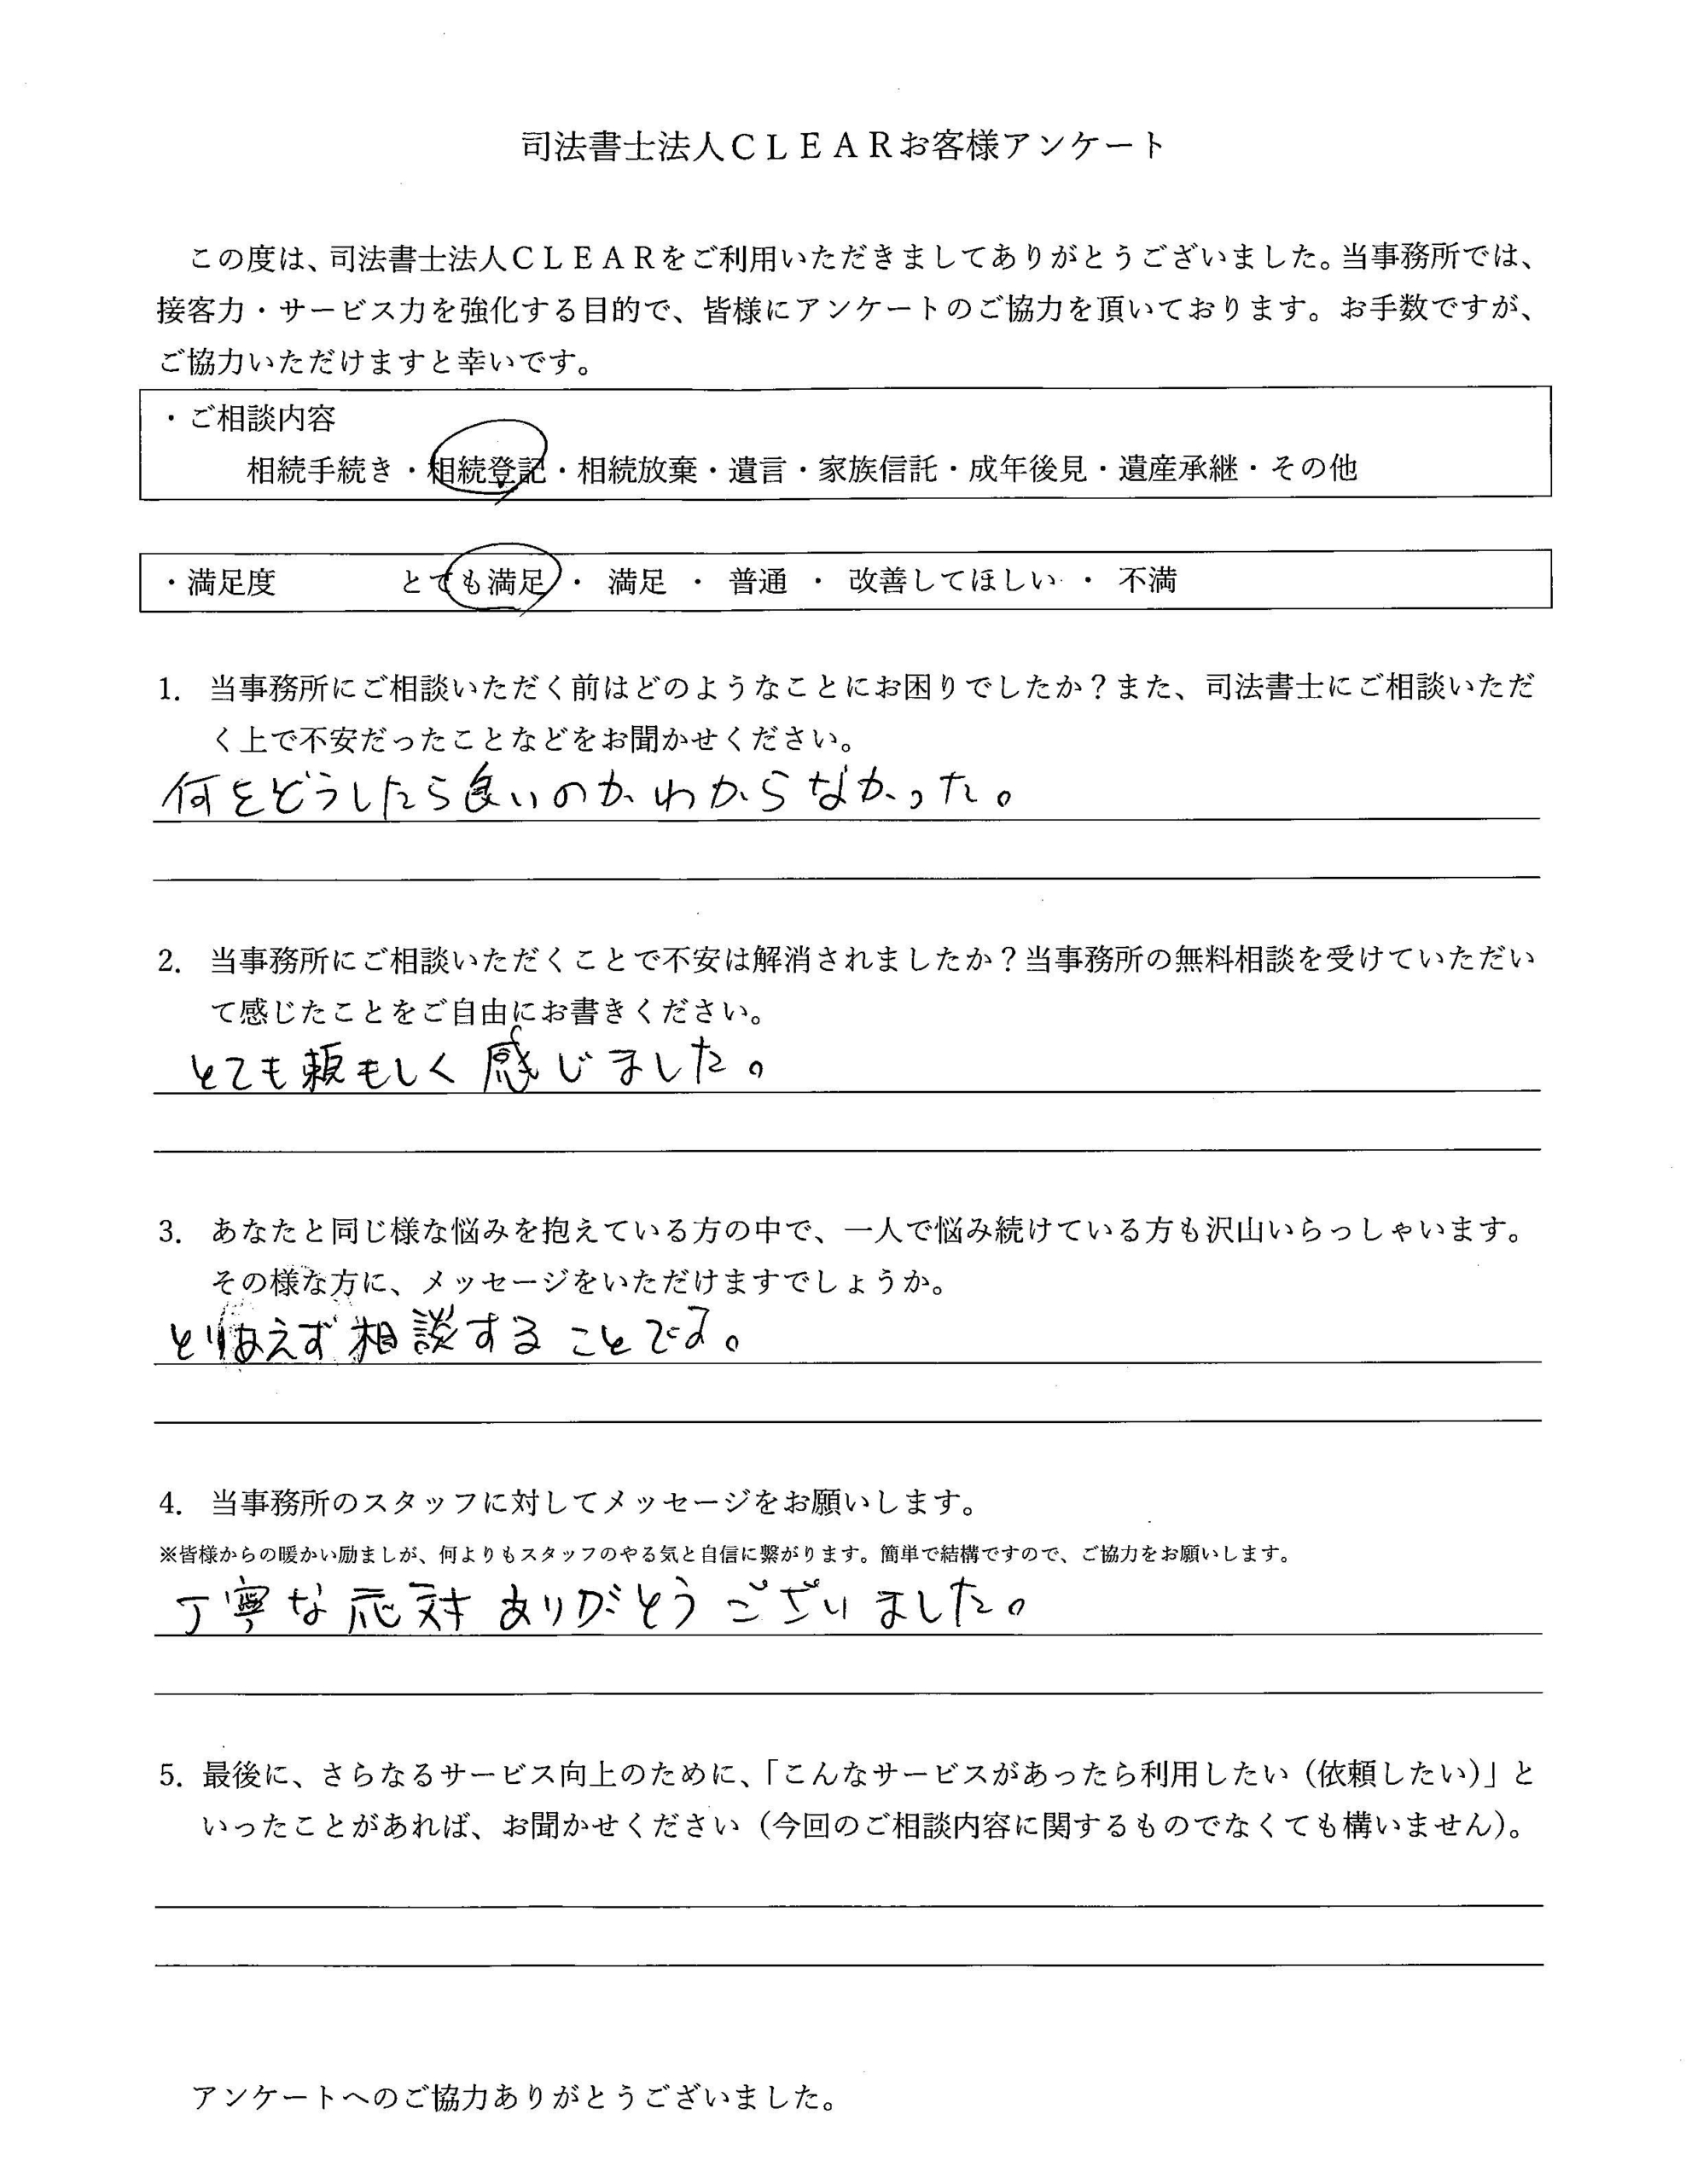 司法書士法人ＣＬＥＡＲお客様アンケート
この度は、司法書士法人ＣＬＥＡＲをご利用いただきましてありがとうございました。当事務所では、
接客力・サービス力を強化する目的で、皆様にアンケートのご協力を頂いております。お手数ですが、
ご協力いただけますと幸いです。
・ご相談内容
相続手続き・相続登記・相続放棄・遺言・家族信託・成年後見・遺産承継・その他
・満足度　とても満足・満足・普通・改善してほしい・不満
1. 当事務所にご相談いただく前はどのようなことにお困りでしたか？また、司法書士にご相談いただ
く上で不安だったことなどをお聞かせください。
何をどうしたら良いのかわからなかった。
2. 当事務所にご相談いただくことで不安は解消されましたか？当事務所の無料相談を受けていただい
て感じたことをご自由にお書きください。
とても頼もしく感じました。
3. あなたと同じ様な悩みを抱えている方の中で、一人で悩み続けている方も沢山いらっしゃいます。
その様な方に、メッセージをいただけますでしょうか。
とりあえず相談することです。
4. 当事務所のスタッフに対してメッセージをお願いします。
※皆様からの暖かい励ましが、何よりもスタッフのやる気と自信に繋がります。簡単で結構ですので、ご協力をお願いします。
丁寧な応対ありがとうございました。
5. 最後に、さらなるサービス向上のために、「こんなサービスがあったら利用したい（依頼したい）」と
いったことがあれば、お聞かせください（今回のご相談内容に関するものでなくても構いません）。
アンケートへのご協力ありがとうございました。